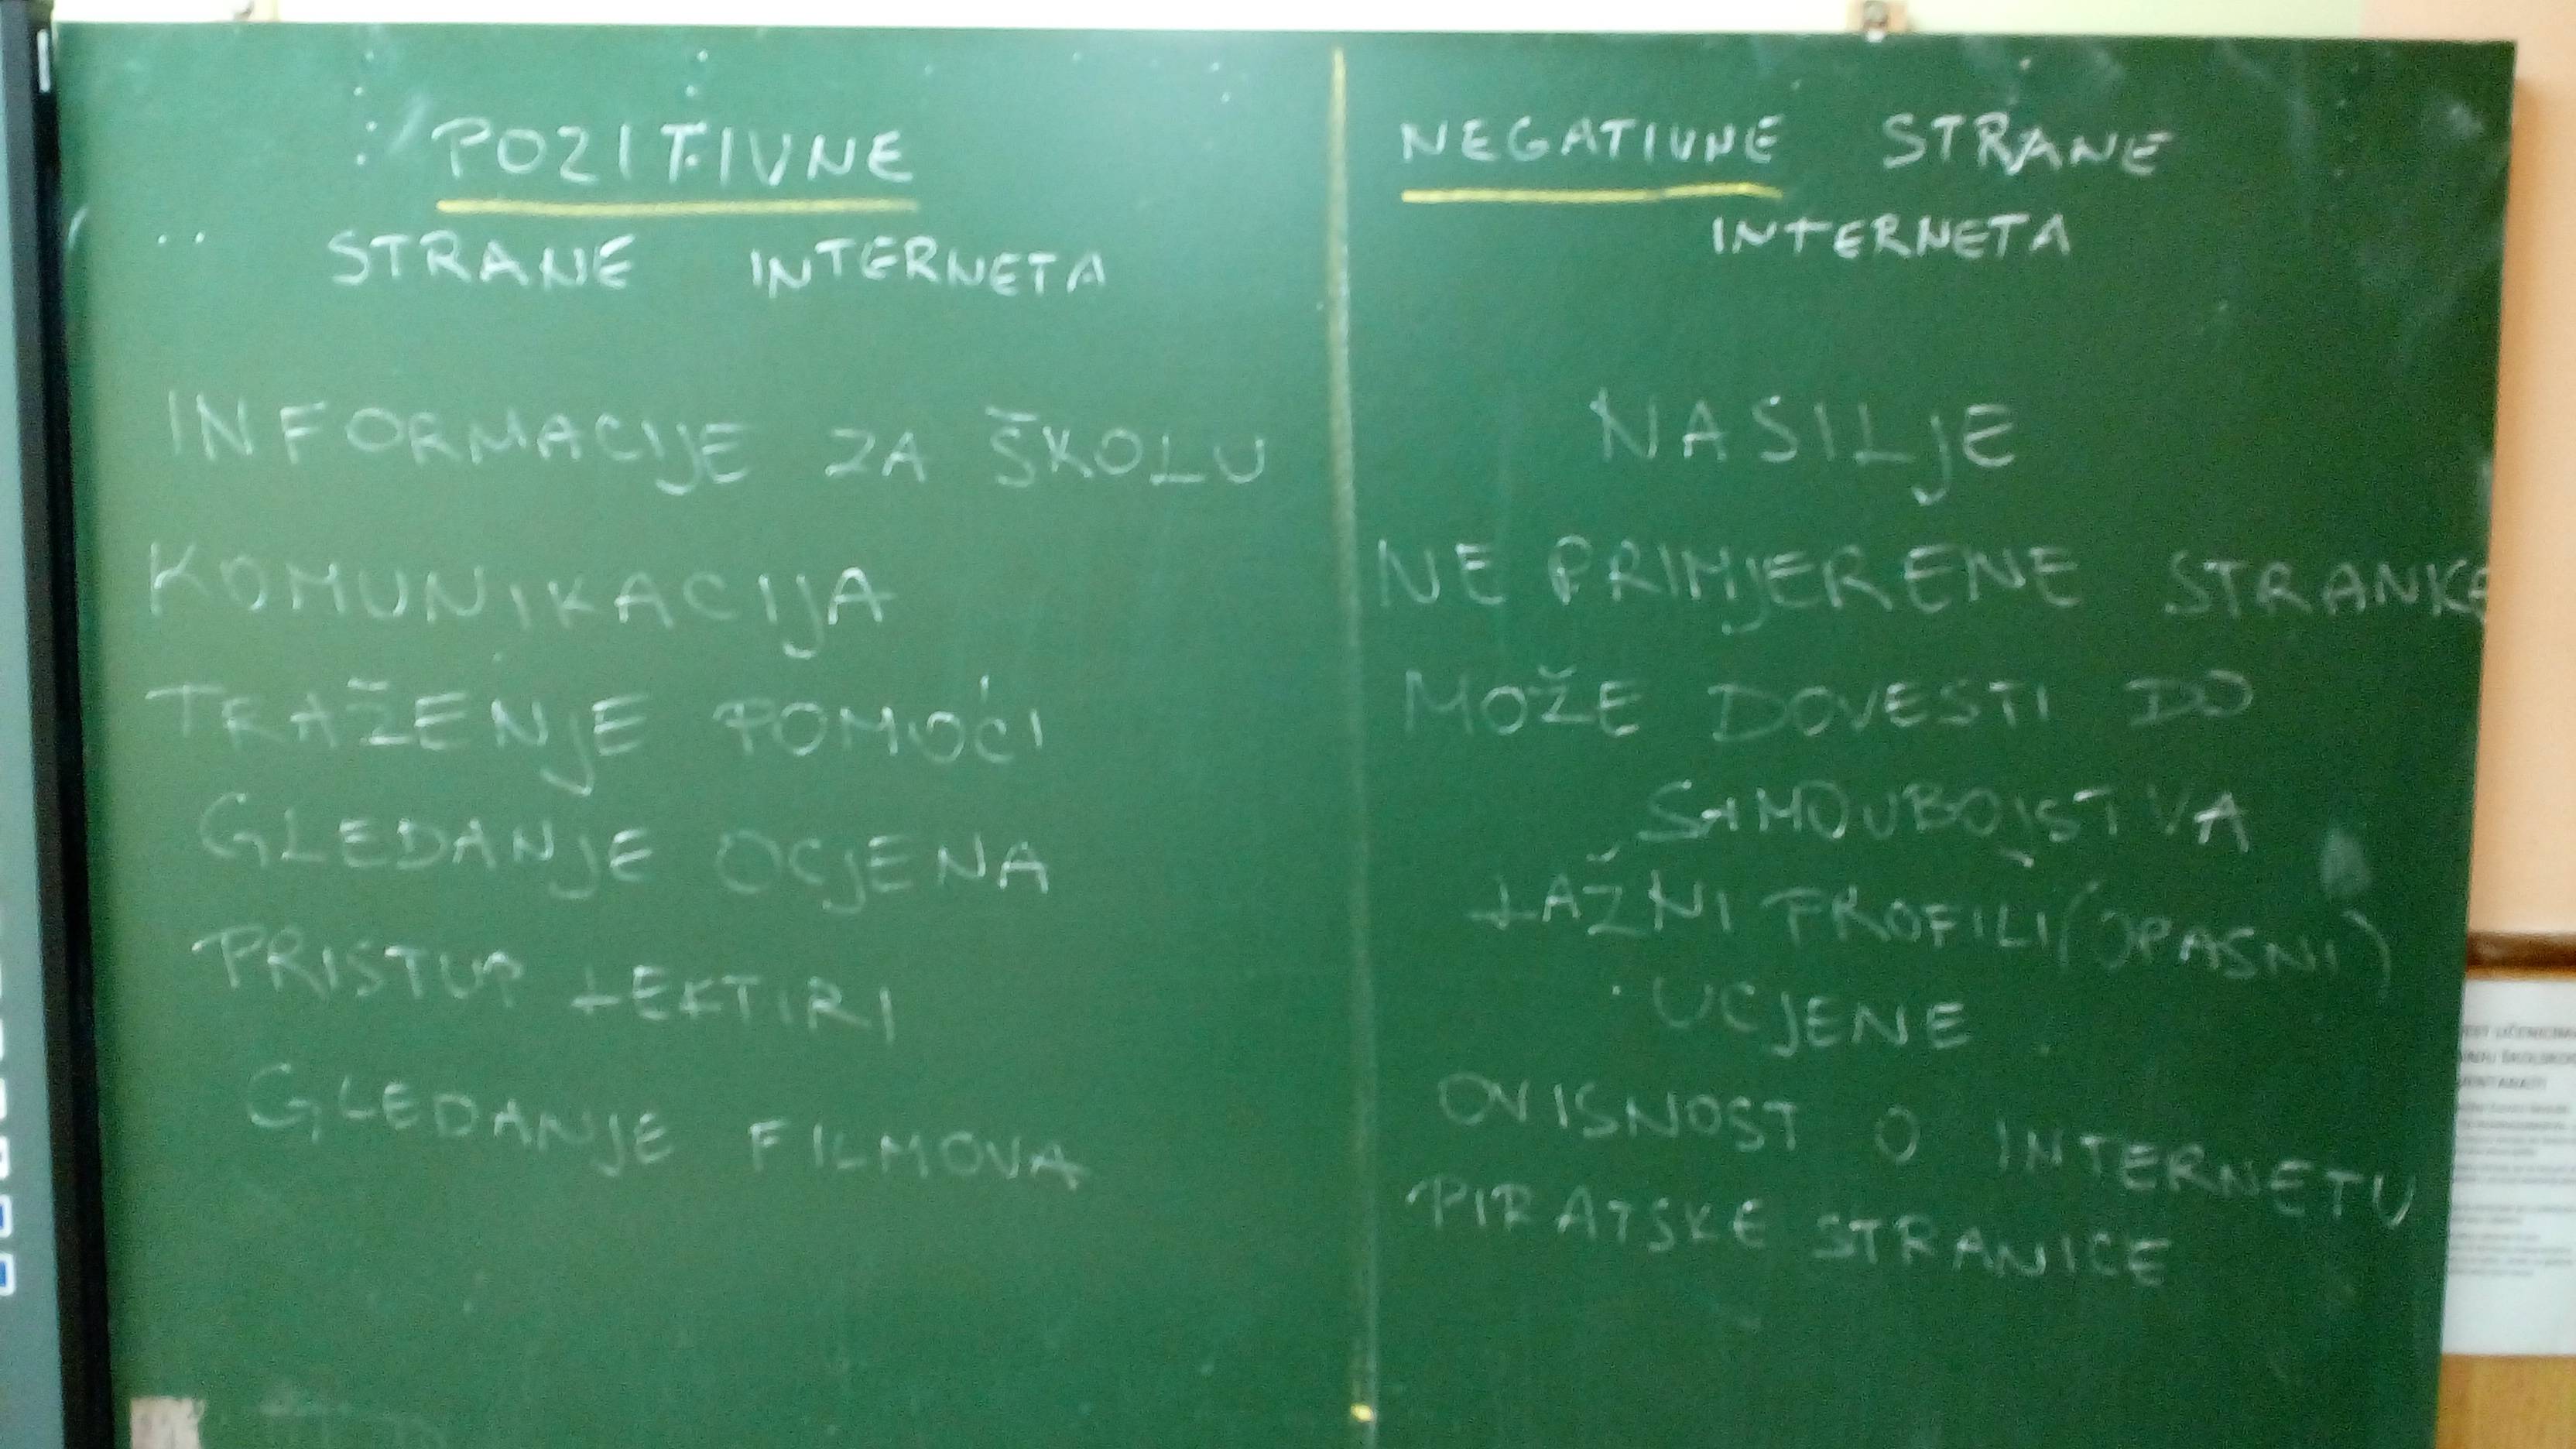 POZITIVNE
STRANE INTERNETA
INFORMACIJE ZA ŠKOLU
KOMUNIKACIJA
TRAŽENJE POMOĆI
GLEDANJE OCJENA
PRISTUP LEKTIRI
GLEDANJE FILMOVA
NEGATIVNE STRANE
INTERNETA
NASILJE
NE PRIMJERENE STRANKE
MOŽE DOVESTI DO
SAMOUBOJSTVA
LAŽNI PROFILI (OPASNI)
UCJENE
OVISNOST O INTERNETU
PIRATSKE STRANICE